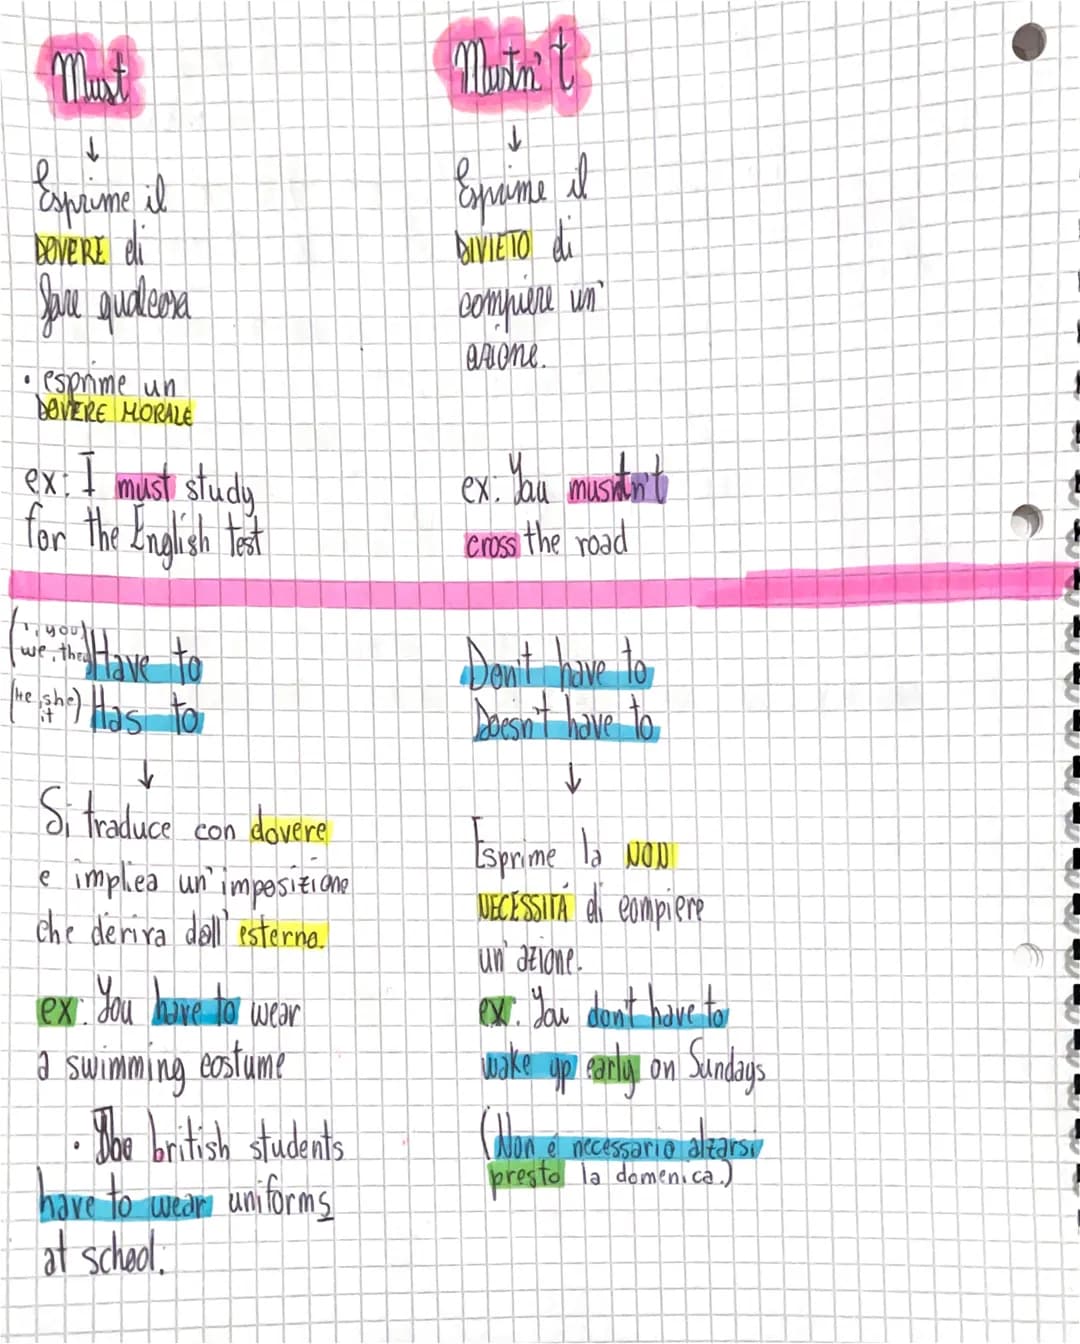 Must
↓
Esprime il
DOVERE di
fare qualcosa
• esprime un
DOVERE MORALE
ex: I must study
for the English test
Mustn't
↓
Esprime il
DIVIETO di
compiere un'
azione.
ex: You mustn't
cross the road
(I, you)
(we, they) Have to
(He, she) Has to
it
↓
Si traduce con dovere
e implica un'imposizione
che deriva dall'esterno.
ex: You have to wear
a swimming costume
• The british students
have to wear uniforms
at school.
Don't have to
Doesn't have to
↓
Esprime la NON
NECESSITÁ di compiere
un'azione.
ex: You don't have to
wake up early on Sundays
(Non é necessario alzarsi
presto la domenica.)